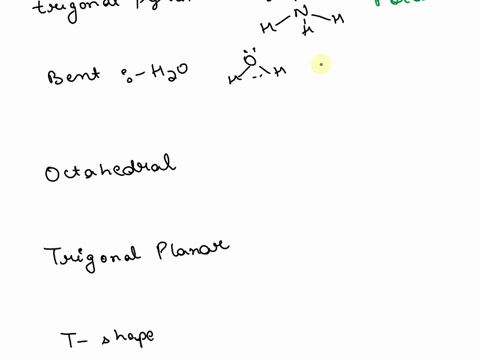 trigonal
N
H H H
Bent :- H2O
O
H H
Octahedral
Trigonal Planar
T- shape